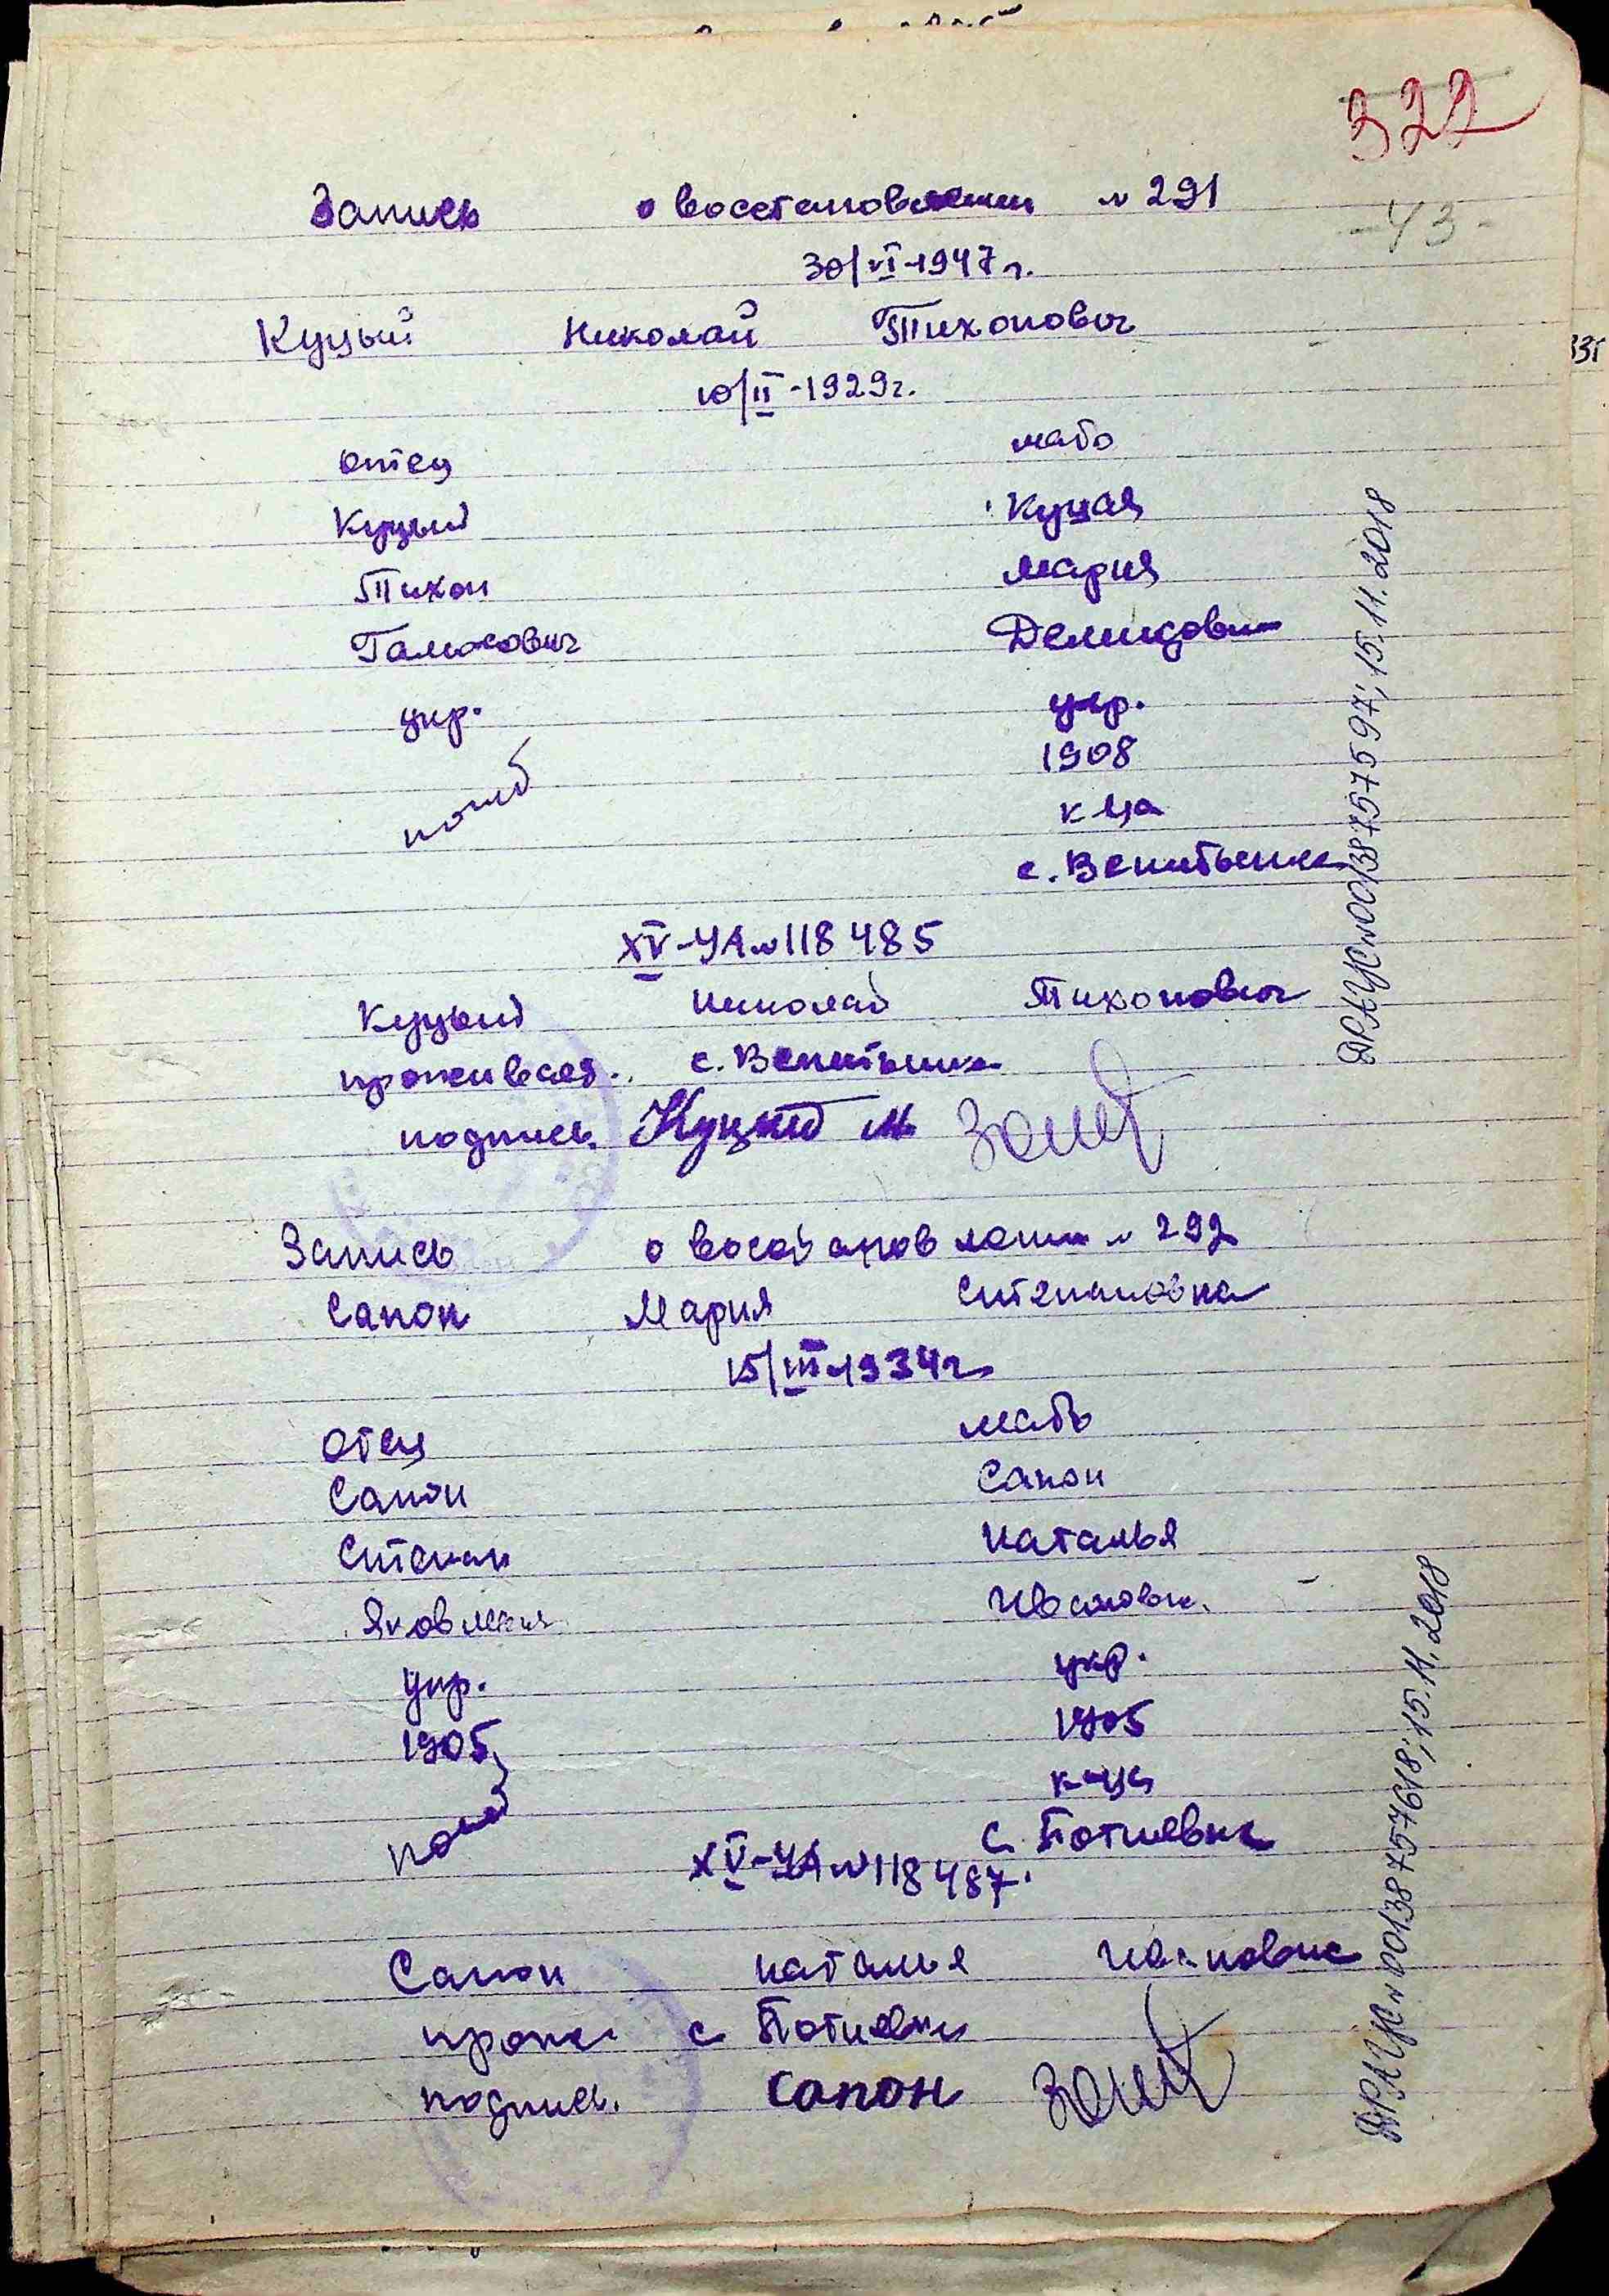 322
Запись о восстановлении № 291
-43-
30/VI-1947г.
Куцый Николай Тихонович
10/II-1929г.
отец мать
Куцый Куцая
Тихон Мария
Демидовн
укр. укр.
1908
погиб к-ца
с.
XV-УА № 118485
Куцый Николай Тихонович
с.
подпись Куцый М
Запись о восстановлении № 292
Сапон Мария Степановна
15/III-1934г
отец мать
Сапон Сапон
Степан Наталья
Ивановн.
укр. укр.
1905 1905
погиб к-ца
с Потиевка
XV-УА № 118487.
Сапон Наталья Ивановна
прожи с Потиевки
подпись. Сапон
ДРАЦС № 00138757597; 15.11.2018
ДРАЦС № 00138757618; 15.11.2018